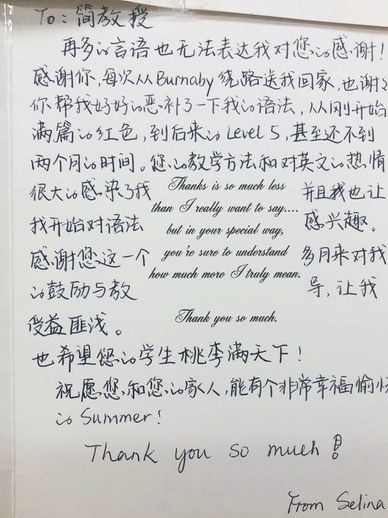 To: 简教授
再多的言语也无法表达我对您的感谢!
感谢你,每次从Burnaby 绕路送我回家,也谢
你帮我好好的恶补了一下我的语法,从刚开始
满篇的红色,到后来的Level 5,甚至还不到
两个月的时间。您的教学方法和对英文的热情
很大的感染了我 Thanks is so much less 并且我也让
than I really want to say....
我开始对语法 but in your special way, 感兴趣。
感谢您这一个 you're sure to understand 多月来对我
how much more I truly mean.
的鼓励与教 导,让我
受益匪浅。 Thank you so much.
也希望您的学生桃李满天下!
祝愿您和您的家人,能有个非常幸福愉快
的 Summer!
Thank you so much!
From Selina